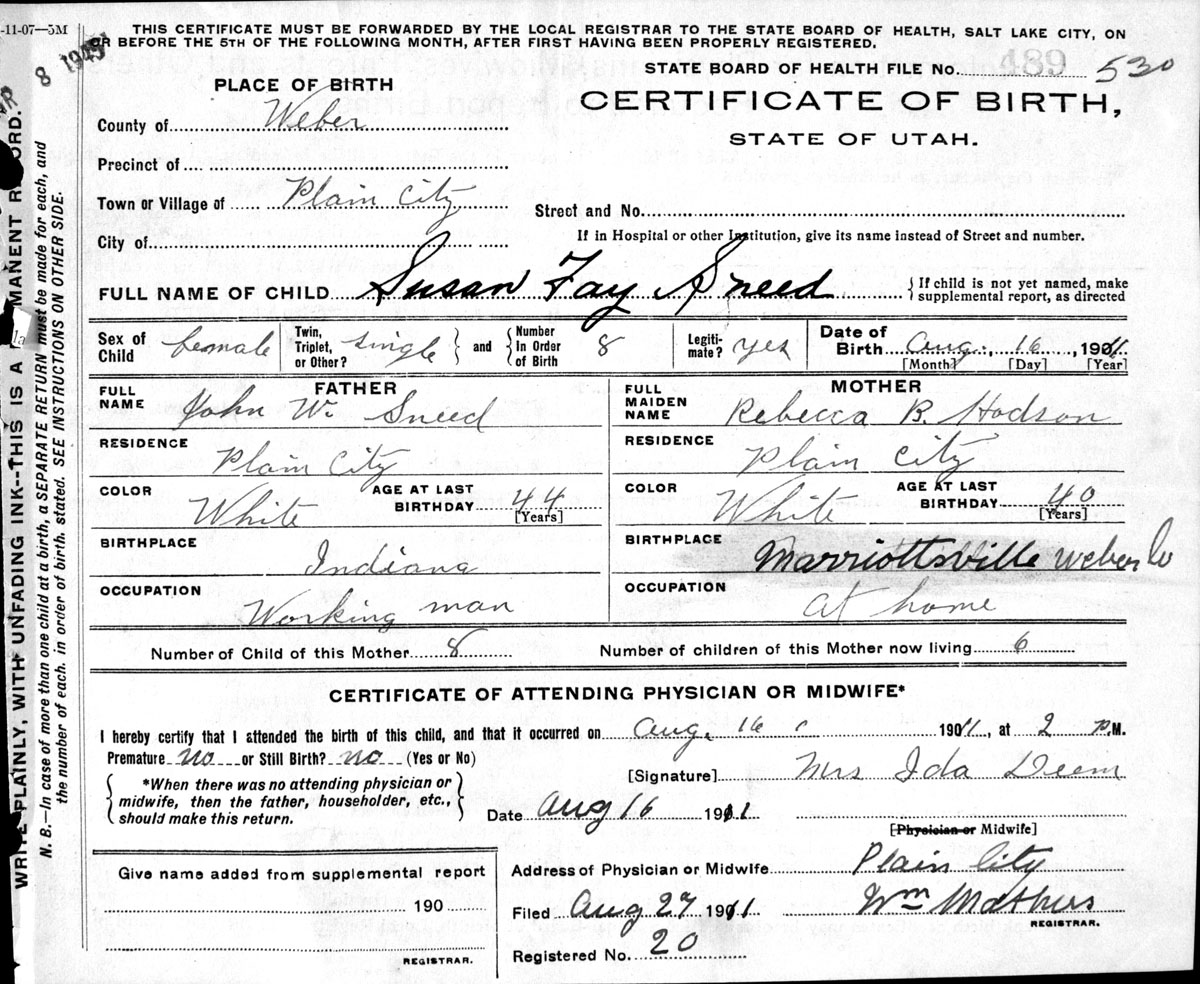 -11-07—5M
THIS CERTIFICATE MUST BE FORWARDED BY THE LOCAL REGISTRAR TO THE STATE BOARD OF HEALTH, SALT LAKE CITY, ON
OR BEFORE THE 5TH OF THE FOLLOWING MONTH, AFTER FIRST HAVING BEEN PROPERLY REGISTERED.
STATE BOARD OF HEALTH FILE No. 489 530
PLACE OF BIRTH
CERTIFICATE OF BIRTH,
STATE OF UTAH.
County of Weber
Precinct of
Town or Village of Plain City
Street and No.
City of
If in Hospital or other Institution, give its name instead of Street and number.
FULL NAME OF CHILD Susan Fay Sneed
If child is not yet named, make
supplemental report, as directed
Sex of Child female Twin, Triplet, or Other? single and Number In Order of Birth 8 Legiti- mate? yes Date of Birth Aug. 16, 1911
[Month] [Day] [Year]
FATHER
MOTHER
FULL NAME John W. Sneed
FULL MAIDEN NAME Rebecca B. Hodson
RESIDENCE Plain City
RESIDENCE Plain City
COLOR White AGE AT LAST BIRTHDAY 44 [Years]
COLOR White AGE AT LAST BIRTHDAY 40 [Years]
BIRTHPLACE Indiana
BIRTHPLACE Marriottsville Weber Co
OCCUPATION Working man
OCCUPATION at home
Number of Child of this Mother 8 Number of children of this Mother now living 6
CERTIFICATE OF ATTENDING PHYSICIAN OR MIDWIFE*
I hereby certify that I attended the birth of this child, and that it occurred on Aug. 16, 1911, at 2 P.M.
Premature no or Still Birth? no (Yes or No)
*When there was no attending physician or
midwife, then the father, householder, etc.,
should make this return.
[Signature] Mrs Ida Deem
Date Aug 16 1911
[Physician or Midwife]
Address of Physician or Midwife Plain City
Give name added from supplemental report
190
REGISTRAR.
Filed Aug 27 1911 Wm Mathus
REGISTRAR.
Registered No. 20
WRITE PLAINLY, WITH UNFADING INK--THIS IS A MANENT RECORD.
N. B.—In case of more than one child at a birth, a SEPARATE RETURN must be made for each, and
the number of each, in order of birth, stated. SEE INSTRUCTIONS ON OTHER SIDE.